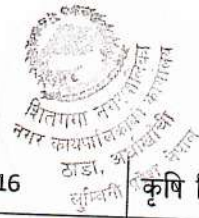 शितगंगा नगरपालिका
नगर कार्यपालिकाको कार्यालय
ठाडा, अर्घाखाँची
लुम्बिनी प्रदेश नेपाल
16
कृषि